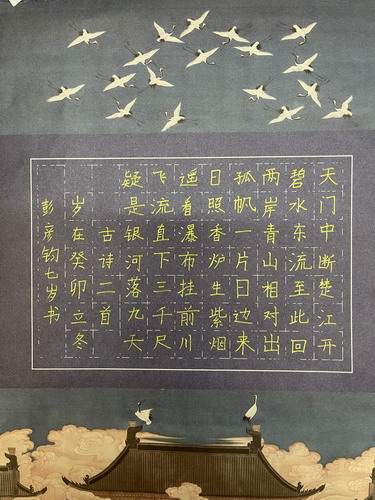 天门中断楚江开
碧水东流至此回
两岸青山相对出
孤帆一片日边来
日照香炉生紫烟
遥看瀑布挂前川
飞流直下三千尺
疑是银河落九天
古诗二首
岁在癸卯立冬
彭彦钧七岁书